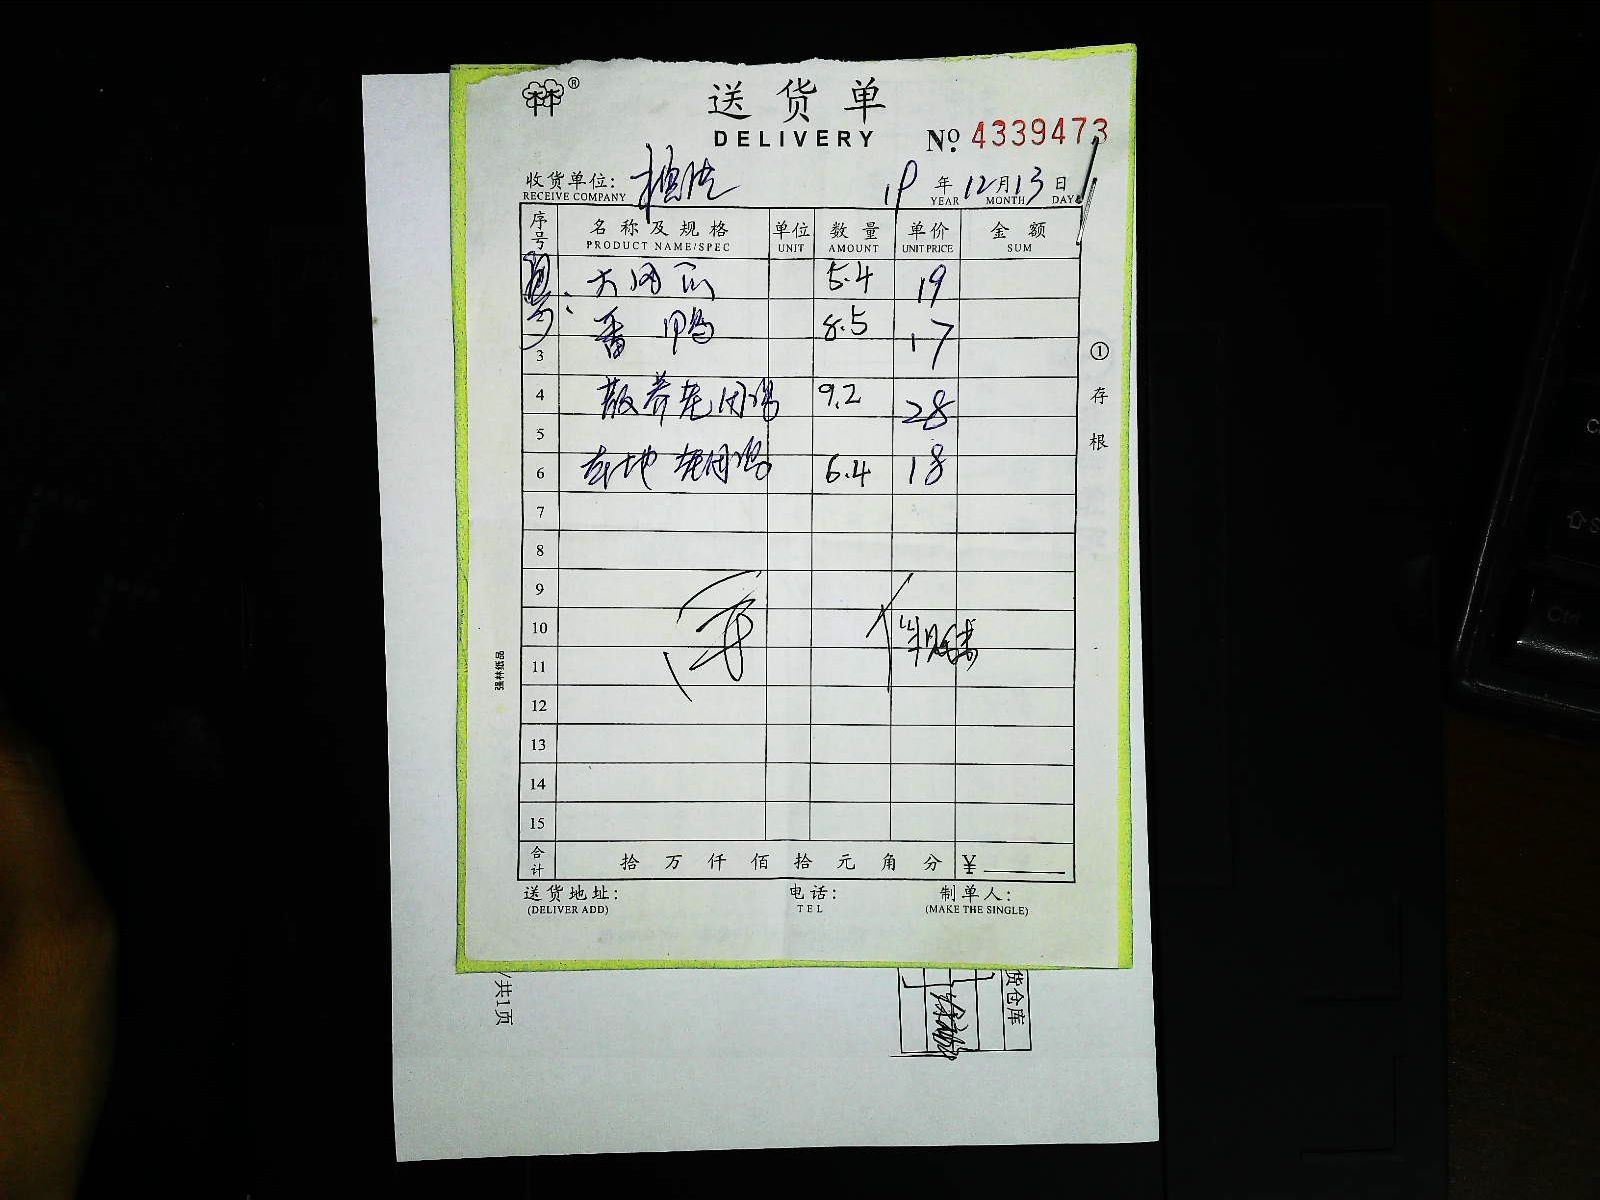 林®
送货单
DELIVERY
No. 4339473
收货单位:
RECEIVE COMPANY
19 年 12 月 13 日
YEAR MONTH DAY
序号 名称及规格 单位 数量 单价 金额
PRODUCT NAME/SPEC UNIT AMOUNT UNIT PRICE SUM
5.4 19
2 番鸭 8.5 17
3
4 散养老阉鸡 9.2 28
5
6 本地老阉鸡 6.4 18
7
8
9
10
11
12
13
14
15
合计 拾 万 仟 佰 拾 元 角 分 ¥
送货地址: 电话: 制单人:
(DELIVER ADD) TEL (MAKE THE SINGLE)
①存根
强林纸品
/共1页
货仓库